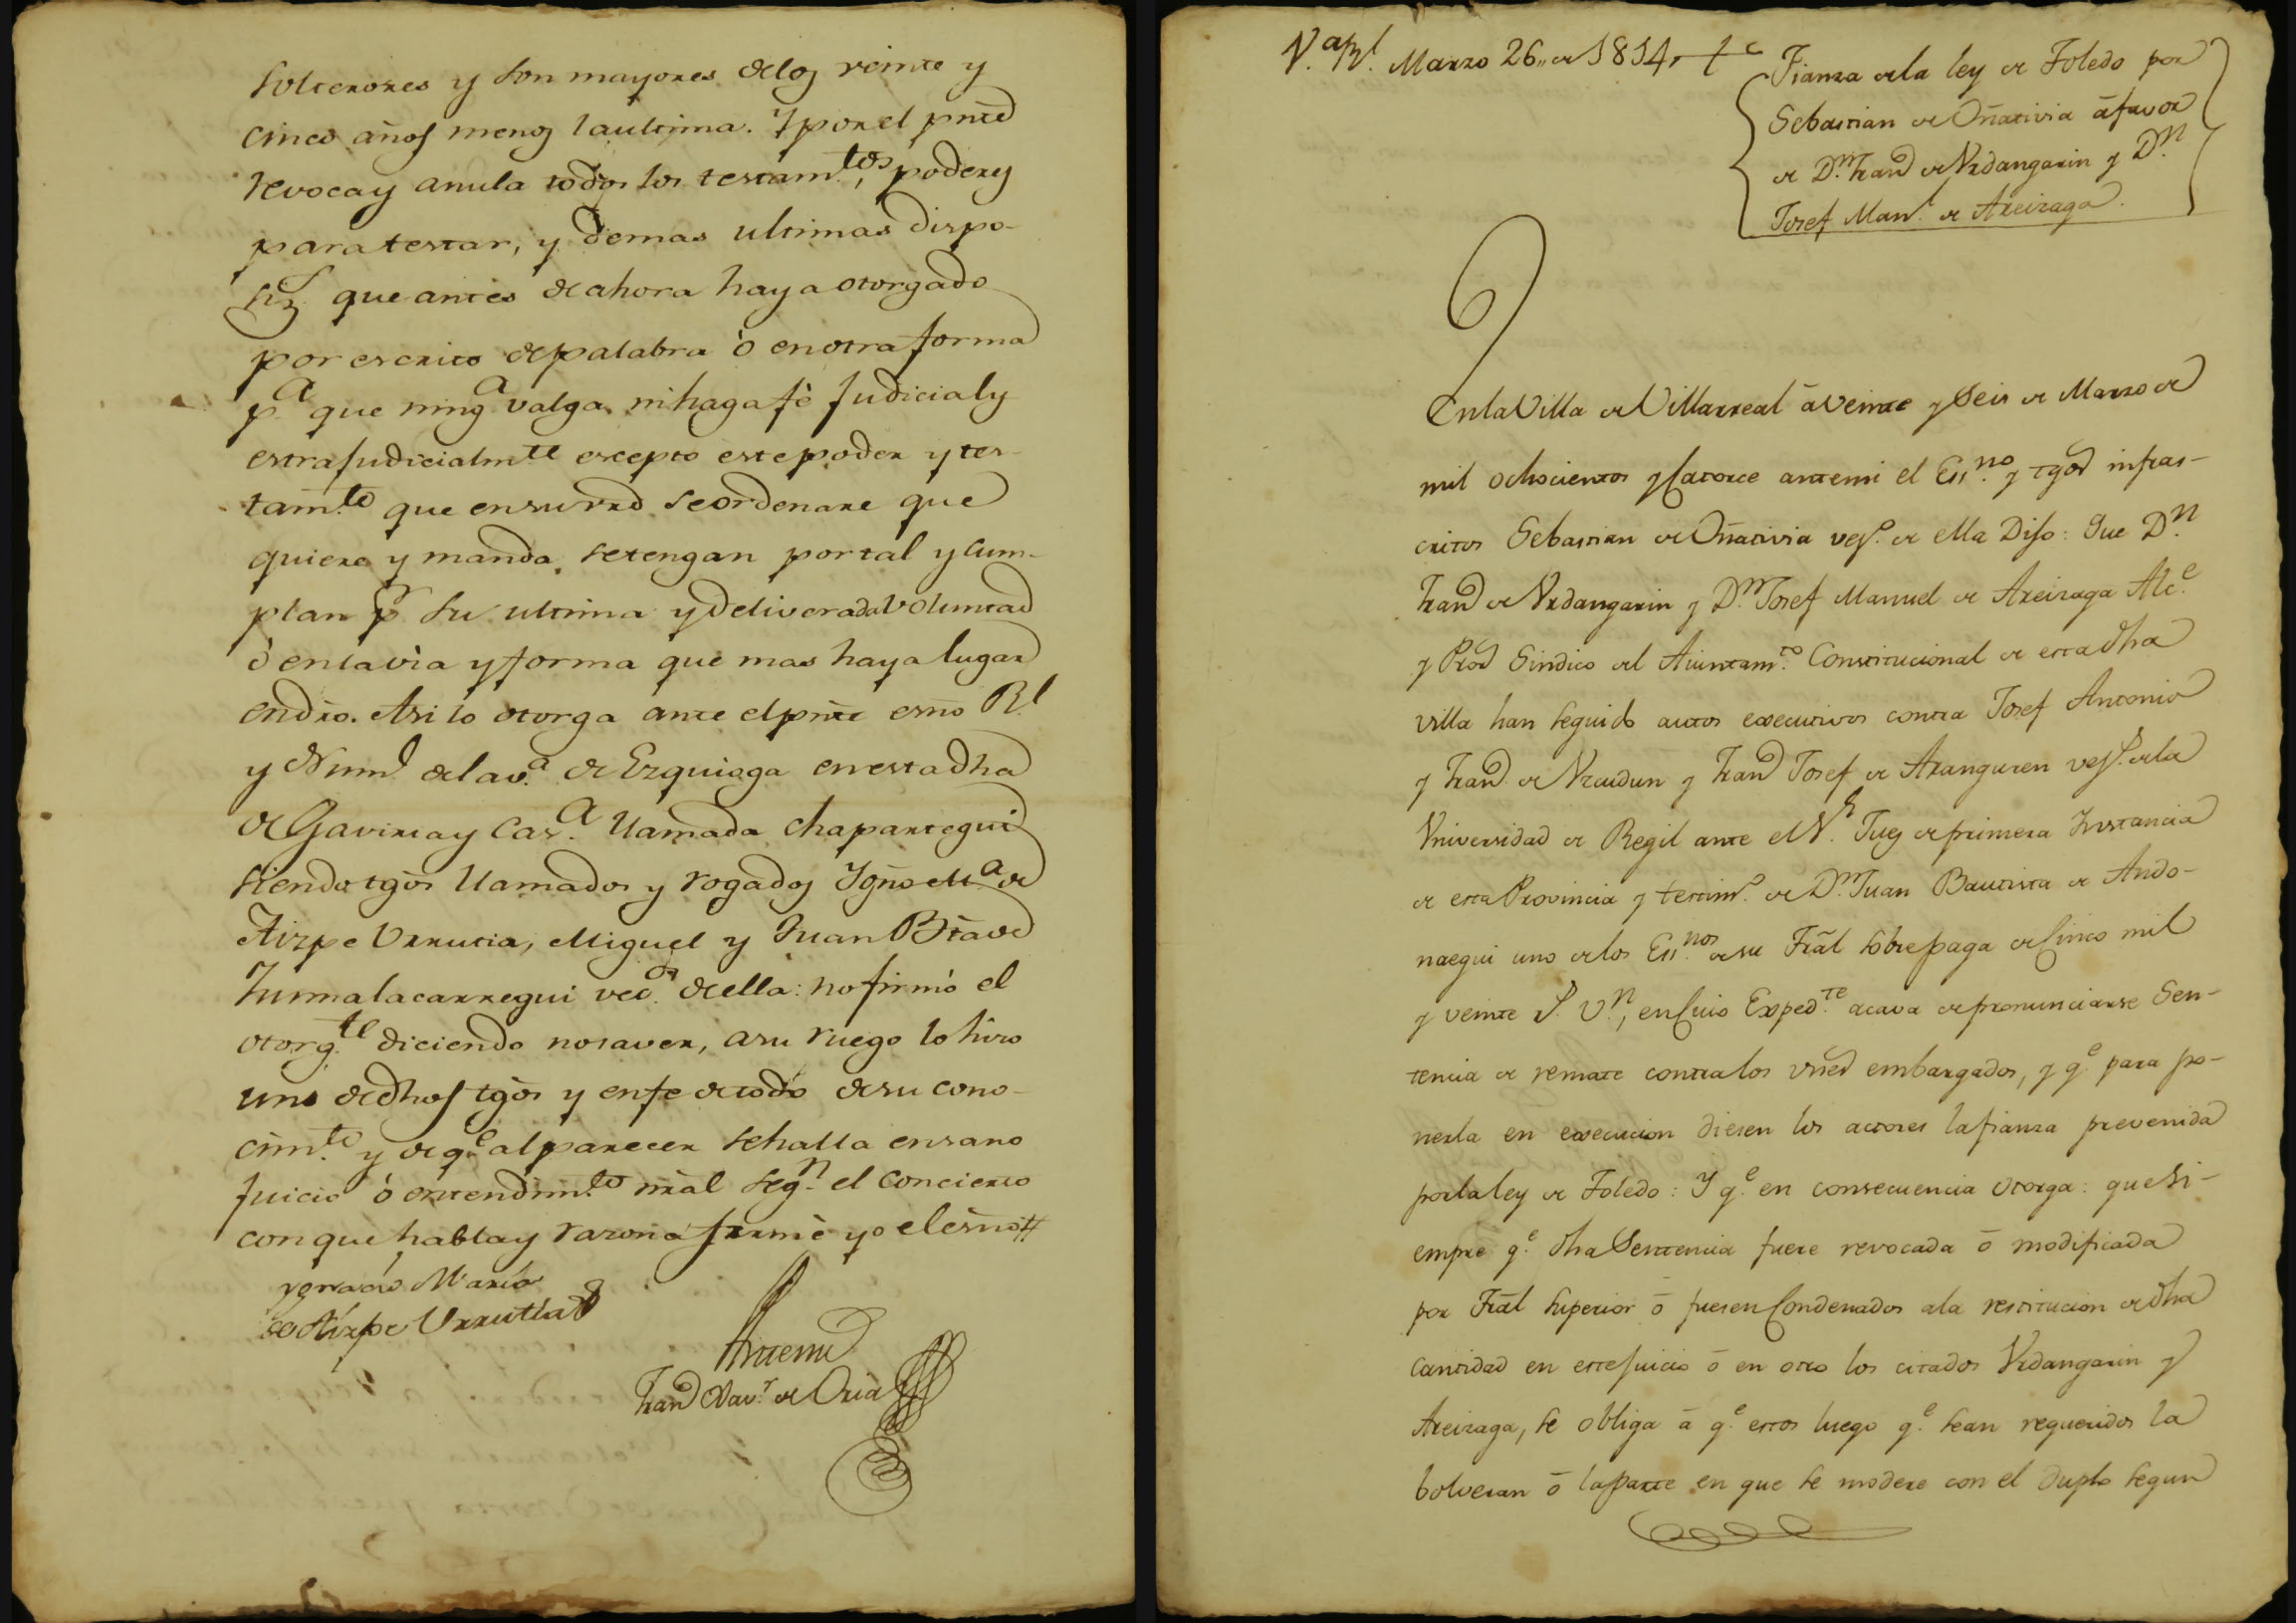 solterones y son mayores de los veinte y
cinco años menos la ultima. Y por el pnte
revoca y anula todos los testam.tos, poderes
para testar, y demas ultimas dispo-
siz.s que antes de ahora haya otorgado
por escrito de palabra ó en otra forma
p.a que ning.a valga ni haga fé Judicial y
extrajudicialm.te excepto este poder y tes-
tam.to que en su vrd se ordenare que
quiere y manda se tengan por tal y cum-
plan pr su ultima y deliverada Voluntad
ó en la via y forma que mas haya lugar
en dro. Asi lo otorga ante el pnte esno R.l
y Num.l de la v.a de Ezquioga en esta dha
de Gaviria y Cas.a llamada Chapartegui
siendo tgos llamados y rogados Ygno M.a de
Aizpe Urrutia, Miguel y Juan Bta de
Zumalacarregui vec.os de ella: no firmó el
otorg.te diciendo no saver, a su ruego lo hizo
uno de dhos tgos y en fe de todo de su cono-
cim.to y de q.e al parecer se halla en sano
Juicio ó entendim.to nral seg.n el concierto
con que habla y razona firmé yo el esno #
Ygnacio Maria
de Aizpe Urrutia
Antemi
Fran.co Xav.r de Oria
V.a Rl. Marzo 26,, de 1814,
Fianza de la ley de Toledo por
Sebastian de Oñativia á favor
de D.n Fran.co de Urdangarin y D.n
Josef Man.l de Areizaga.
En la Villa de Villarreal á Veinte y Seis de Marzo de
mil ochocientos y Catorce ante mi el Ess.no y tgos infras-
critos Sebastian de Oñativia vef.o de ella Dijo: Que D.n
Fran.co de Urdangarin y D.n Josef Manuel de Areizaga Alc.e
y Pror Sindico del Aiuntam.to Constitucional de esta dha
villa han seguido autos executivos contra Josef Antonio
y Fran.co de Urcudun y Fran.co Josef de Aranguren vef.s de la
Universidad de Regil ante el S.r Juez de primera Instancia
de esta Provincia y testim.o de D.n Juan Bautista de Ando-
naegui uno de los Ess.nos de su Tral sobre paga de Cinco mil
y veinte r.s v.n, en Cuio Exped.te acava de pronunciarse Sen-
tencia de remate contra los vnes embargados, y q.e para po-
nerla en execucion diesen los actores la fianza prevenida
por la ley de Toledo: Y q.e en consecuencia otorga: que si-
empre q.e dha Sentencia fuere revocada ó modificada
por Tral superior ó fuesen Condenados a la restitucion de dha
cantidad en este juicio ó en otro los citados Urdangarin y
Areizaga, se obliga á q.e estos luego q.e sean requeridos la
bolveran ó la parte en que se modere con el duplo segun